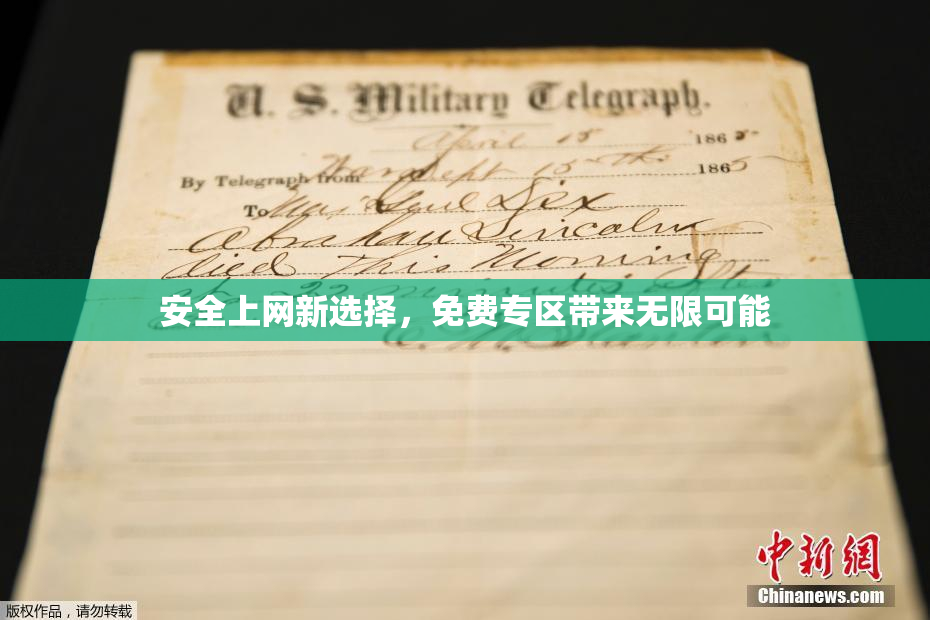 U. S. Military Telegraph.
April 15 1865
By Telegraph from War Dept 15th 1865
To Maj Genl Dix
Abraham Lincoln
died this Morning
at 22 minutes after
安全上网新选择，免费专区带来无限可能
E. M. Stanton
中新网
Chinanews.com
版权作品，请勿转载